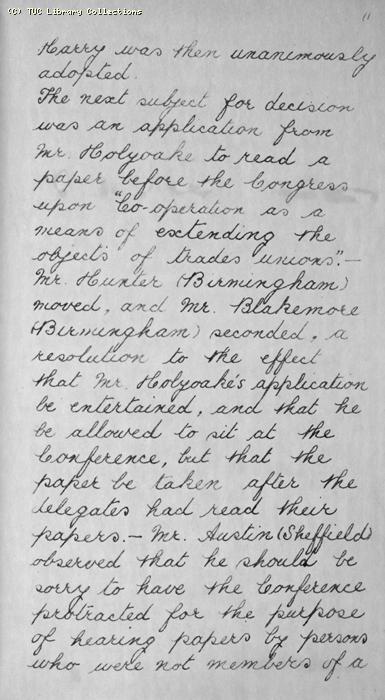 (C) TUC Library Collections
11
Harry was then unanimously
adopted.
The next subject for decision
was an application from
Mr. Holyoake to read a
paper before the Congress
upon "Co-operation as a
means of extending the
objects of trades unions".—
Mr. Hunter (Birmingham)
moved, and Mr. Blakemore
(Birmingham) seconded, a
resolution to the effect
that Mr. Holyoake's application
be entertained, and that he
be allowed to sit at the
Conference, but that the
paper be taken after the
delegates had read their
papers.— Mr. Austin (Sheffield)
observed that he should be
sorry to have the Conference
protracted for the purpose
of hearing papers by persons
who were not members of a